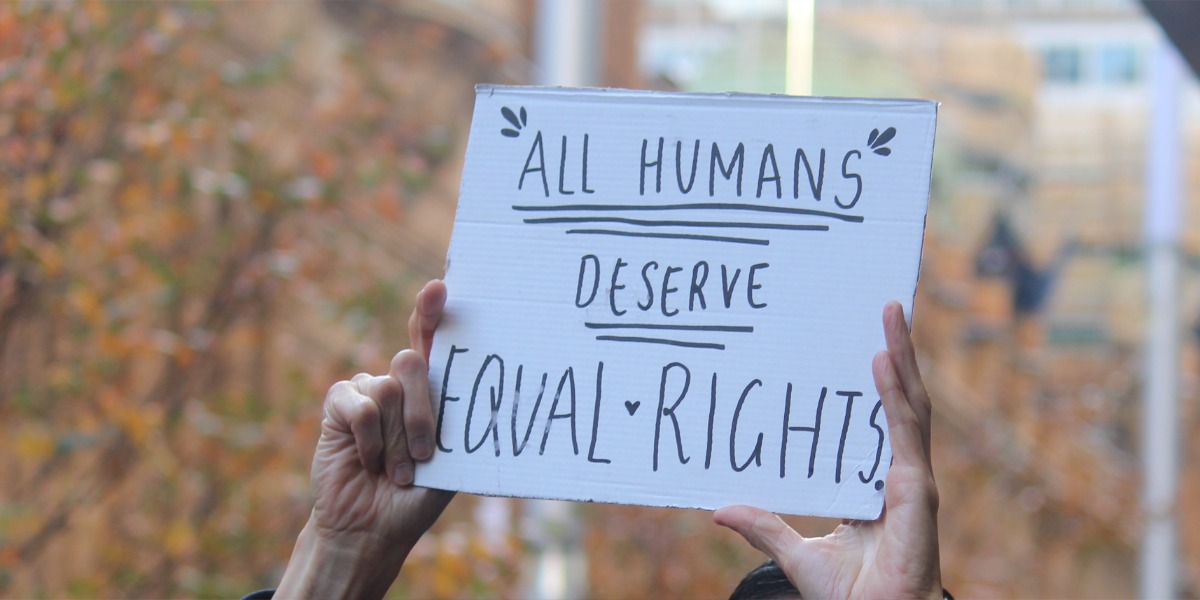 "ALL HUMANS"
DESERVE
EQUAL ♥ RIGHTS.